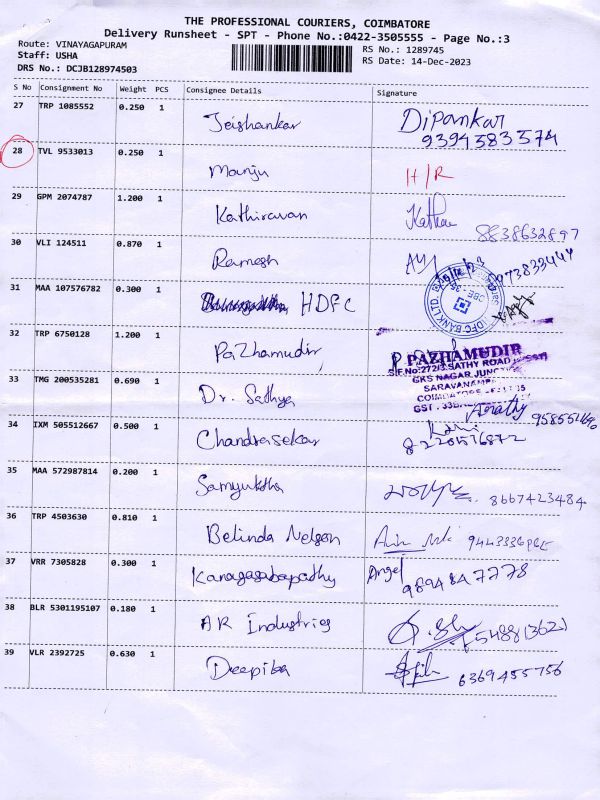 THE PROFESSIONAL COURIERS, COIMBATORE
Delivery Runsheet - SPT - Phone No.:0422-3505555 - Page No.:3
Route: VINAYAGAPURAM
Staff: USHA
DRS No.: DCJB128974503
RS No.: 1289745
RS Date: 14-Dec-2023
S No Consignment No Weight PCS Consignee Details Signature
27 TRP 1085552 0.250 1 Jeishankar Dipankar
9394583574
28 TVL 9533013 0.250 1 Manju H/R
29 GPM 2074787 1.200 1 Kathiravan 8838632897
30 VLI 124511 0.870 1 Ramesh
31 MAA 107576782 0.300 1 HDFC HDFC BANK LTD.
32 TRP 6750128 1.200 1 Pazhamudir PAZHAMUDIR
S.F.No:272/3, SATHY ROAD
GKS NAGAR JUNCTION
33 TMG 200535281 0.690 1 Dr. Sathya
34 IXM 505512667 0.500 1 Chandrasekar
35 MAA 572987814 0.200 1 Samyuktha 8667423484
36 TRP 4503630 0.810 1 Belinda Nelson
37 VRR 7305828 0.300 1 Kanagasabapathy Angel
9894847778
38 BLR 5301195107 0.180 1 AR Industries 5488 (362)
39 VLR 2392725 0.630 1 Deepika 6369455756